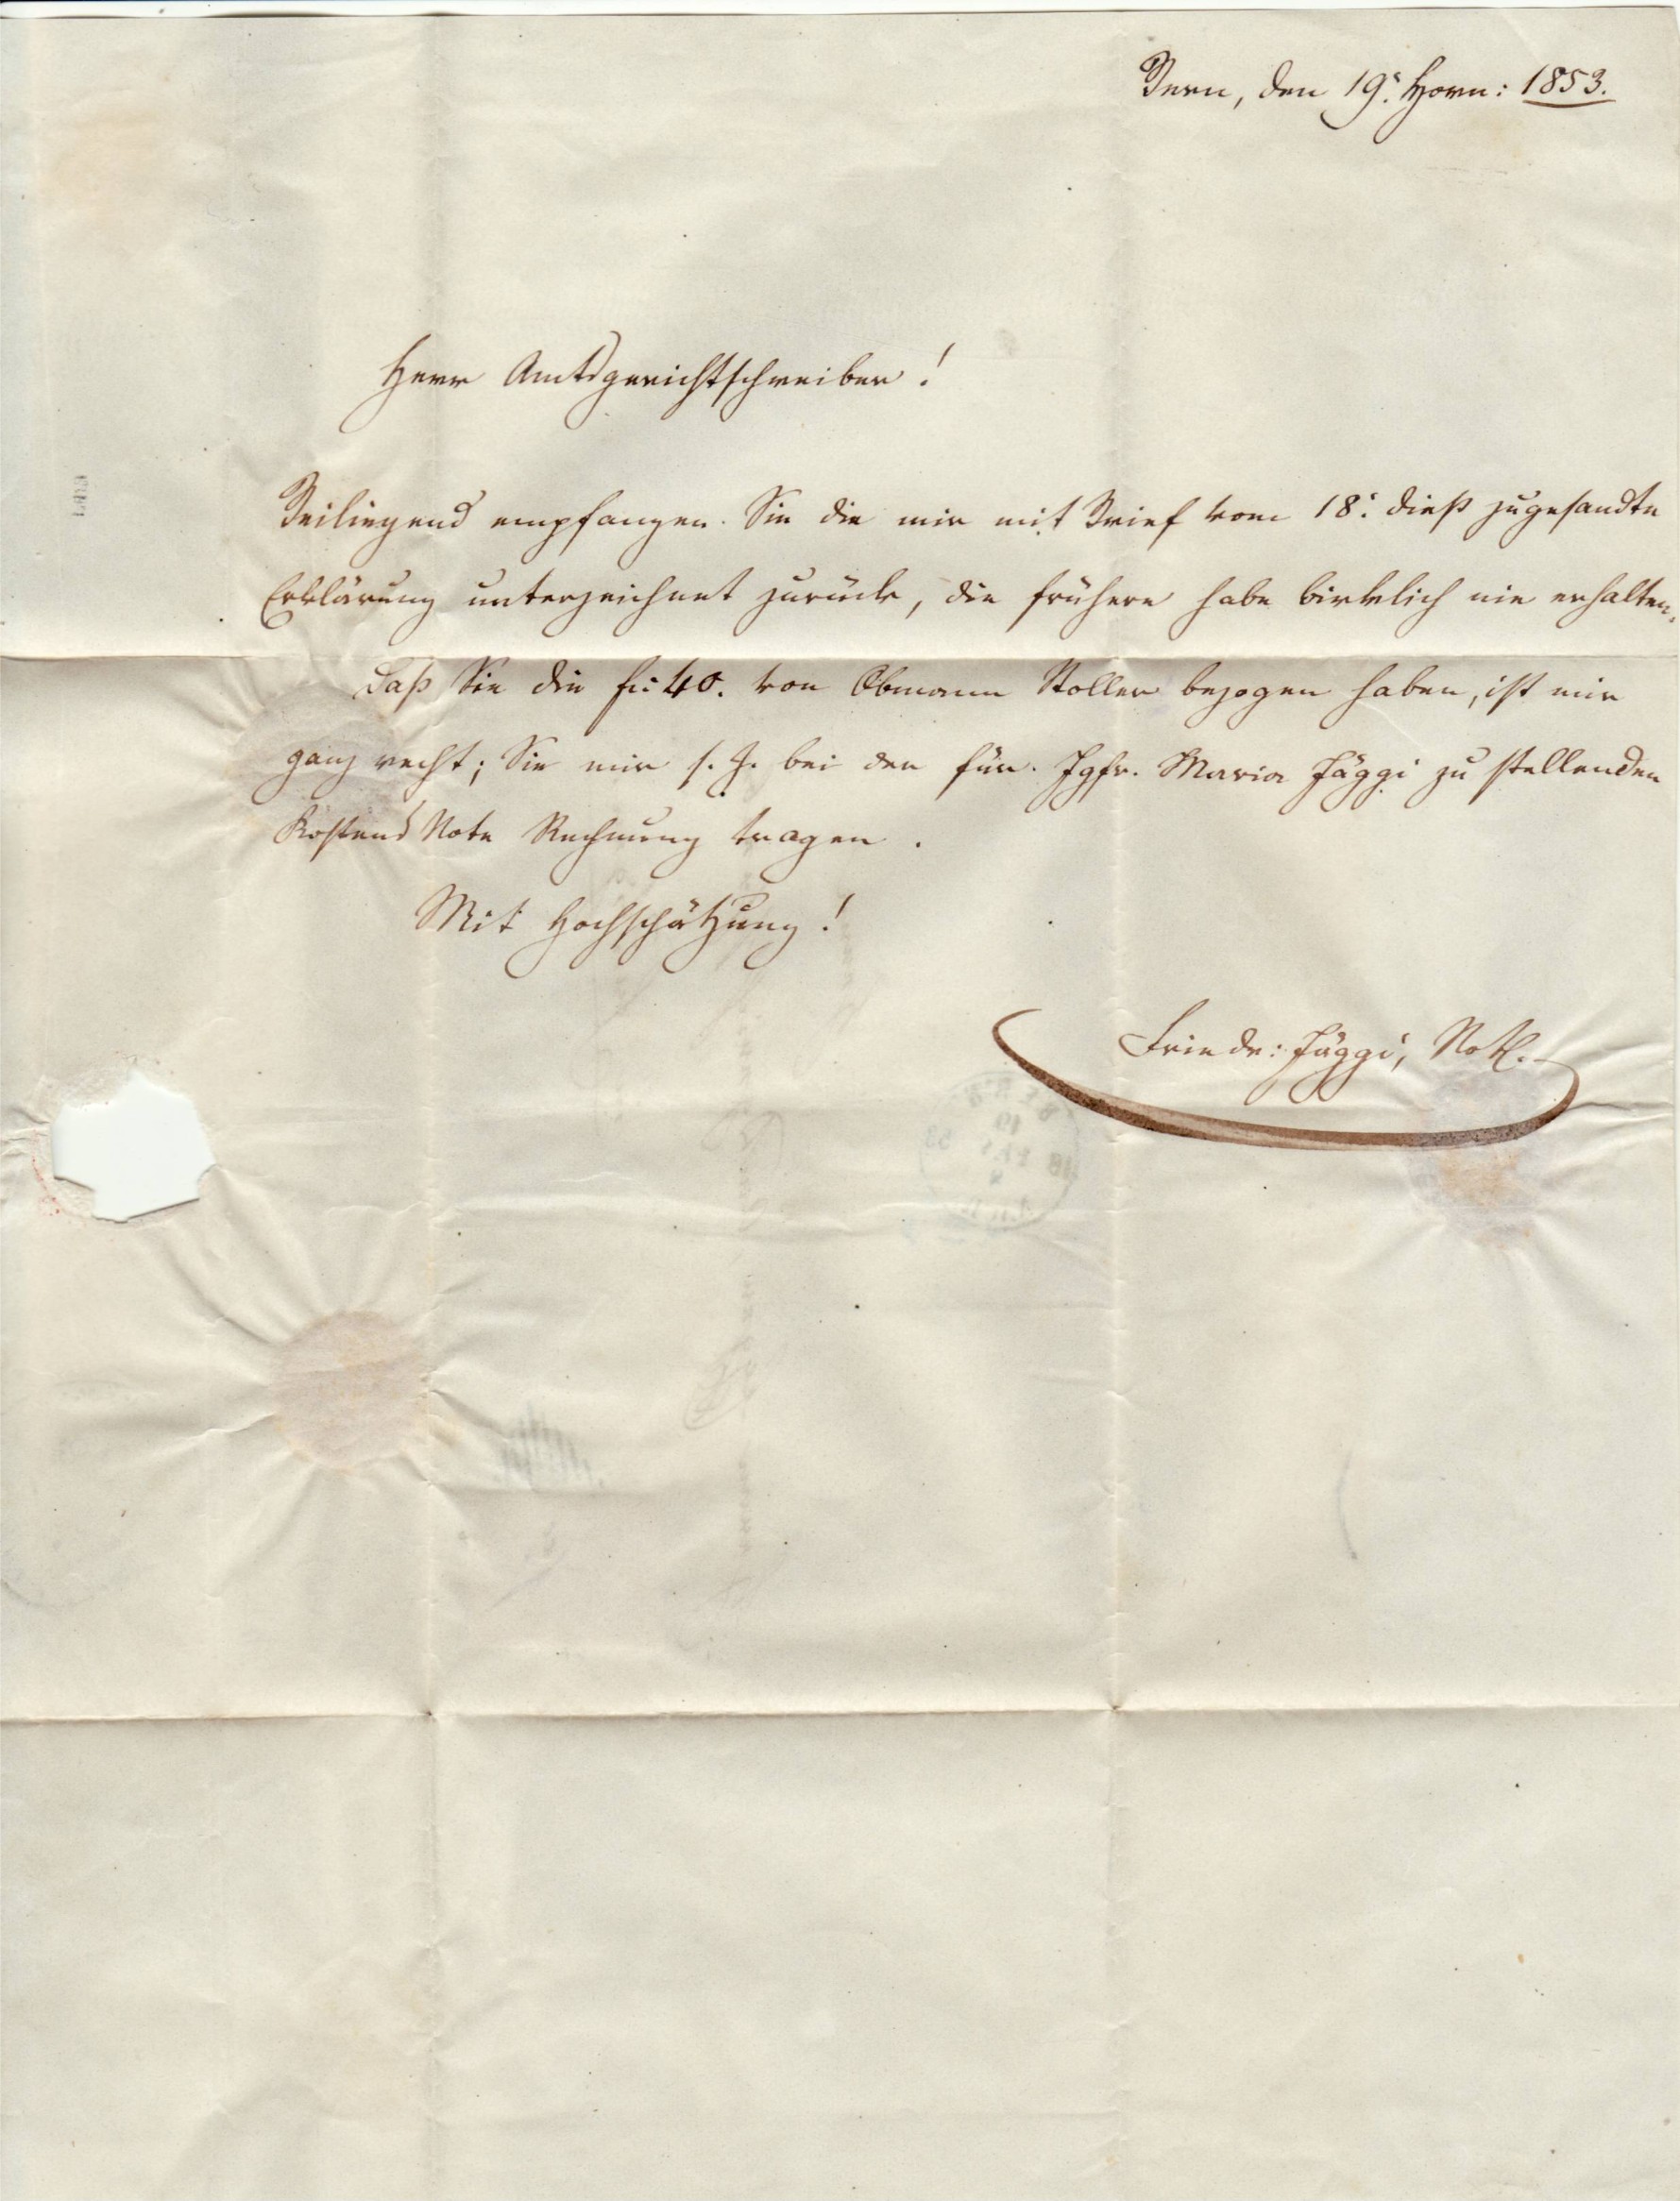 Bern, den 19.t Horn: 1853.
Herr Amtsgerichtschreiber!
Beiliegend empfangen Sie die mir mit Brief vom 18.t dieß zugesandte
Erklärung unterzeichnet zurück, die frühere habe wirklich nie erhalten.
Daß Sie die fr: 40. von Obmann Stoller bezogen haben, ist mir
ganz recht; Sie mir s. Z. bei der für Jgfr. Maria Jäggi zu stellenden
Kostens Note Rechnung tragen.
Mit Hochschätzung!
Friedr: Jäggi, Not.